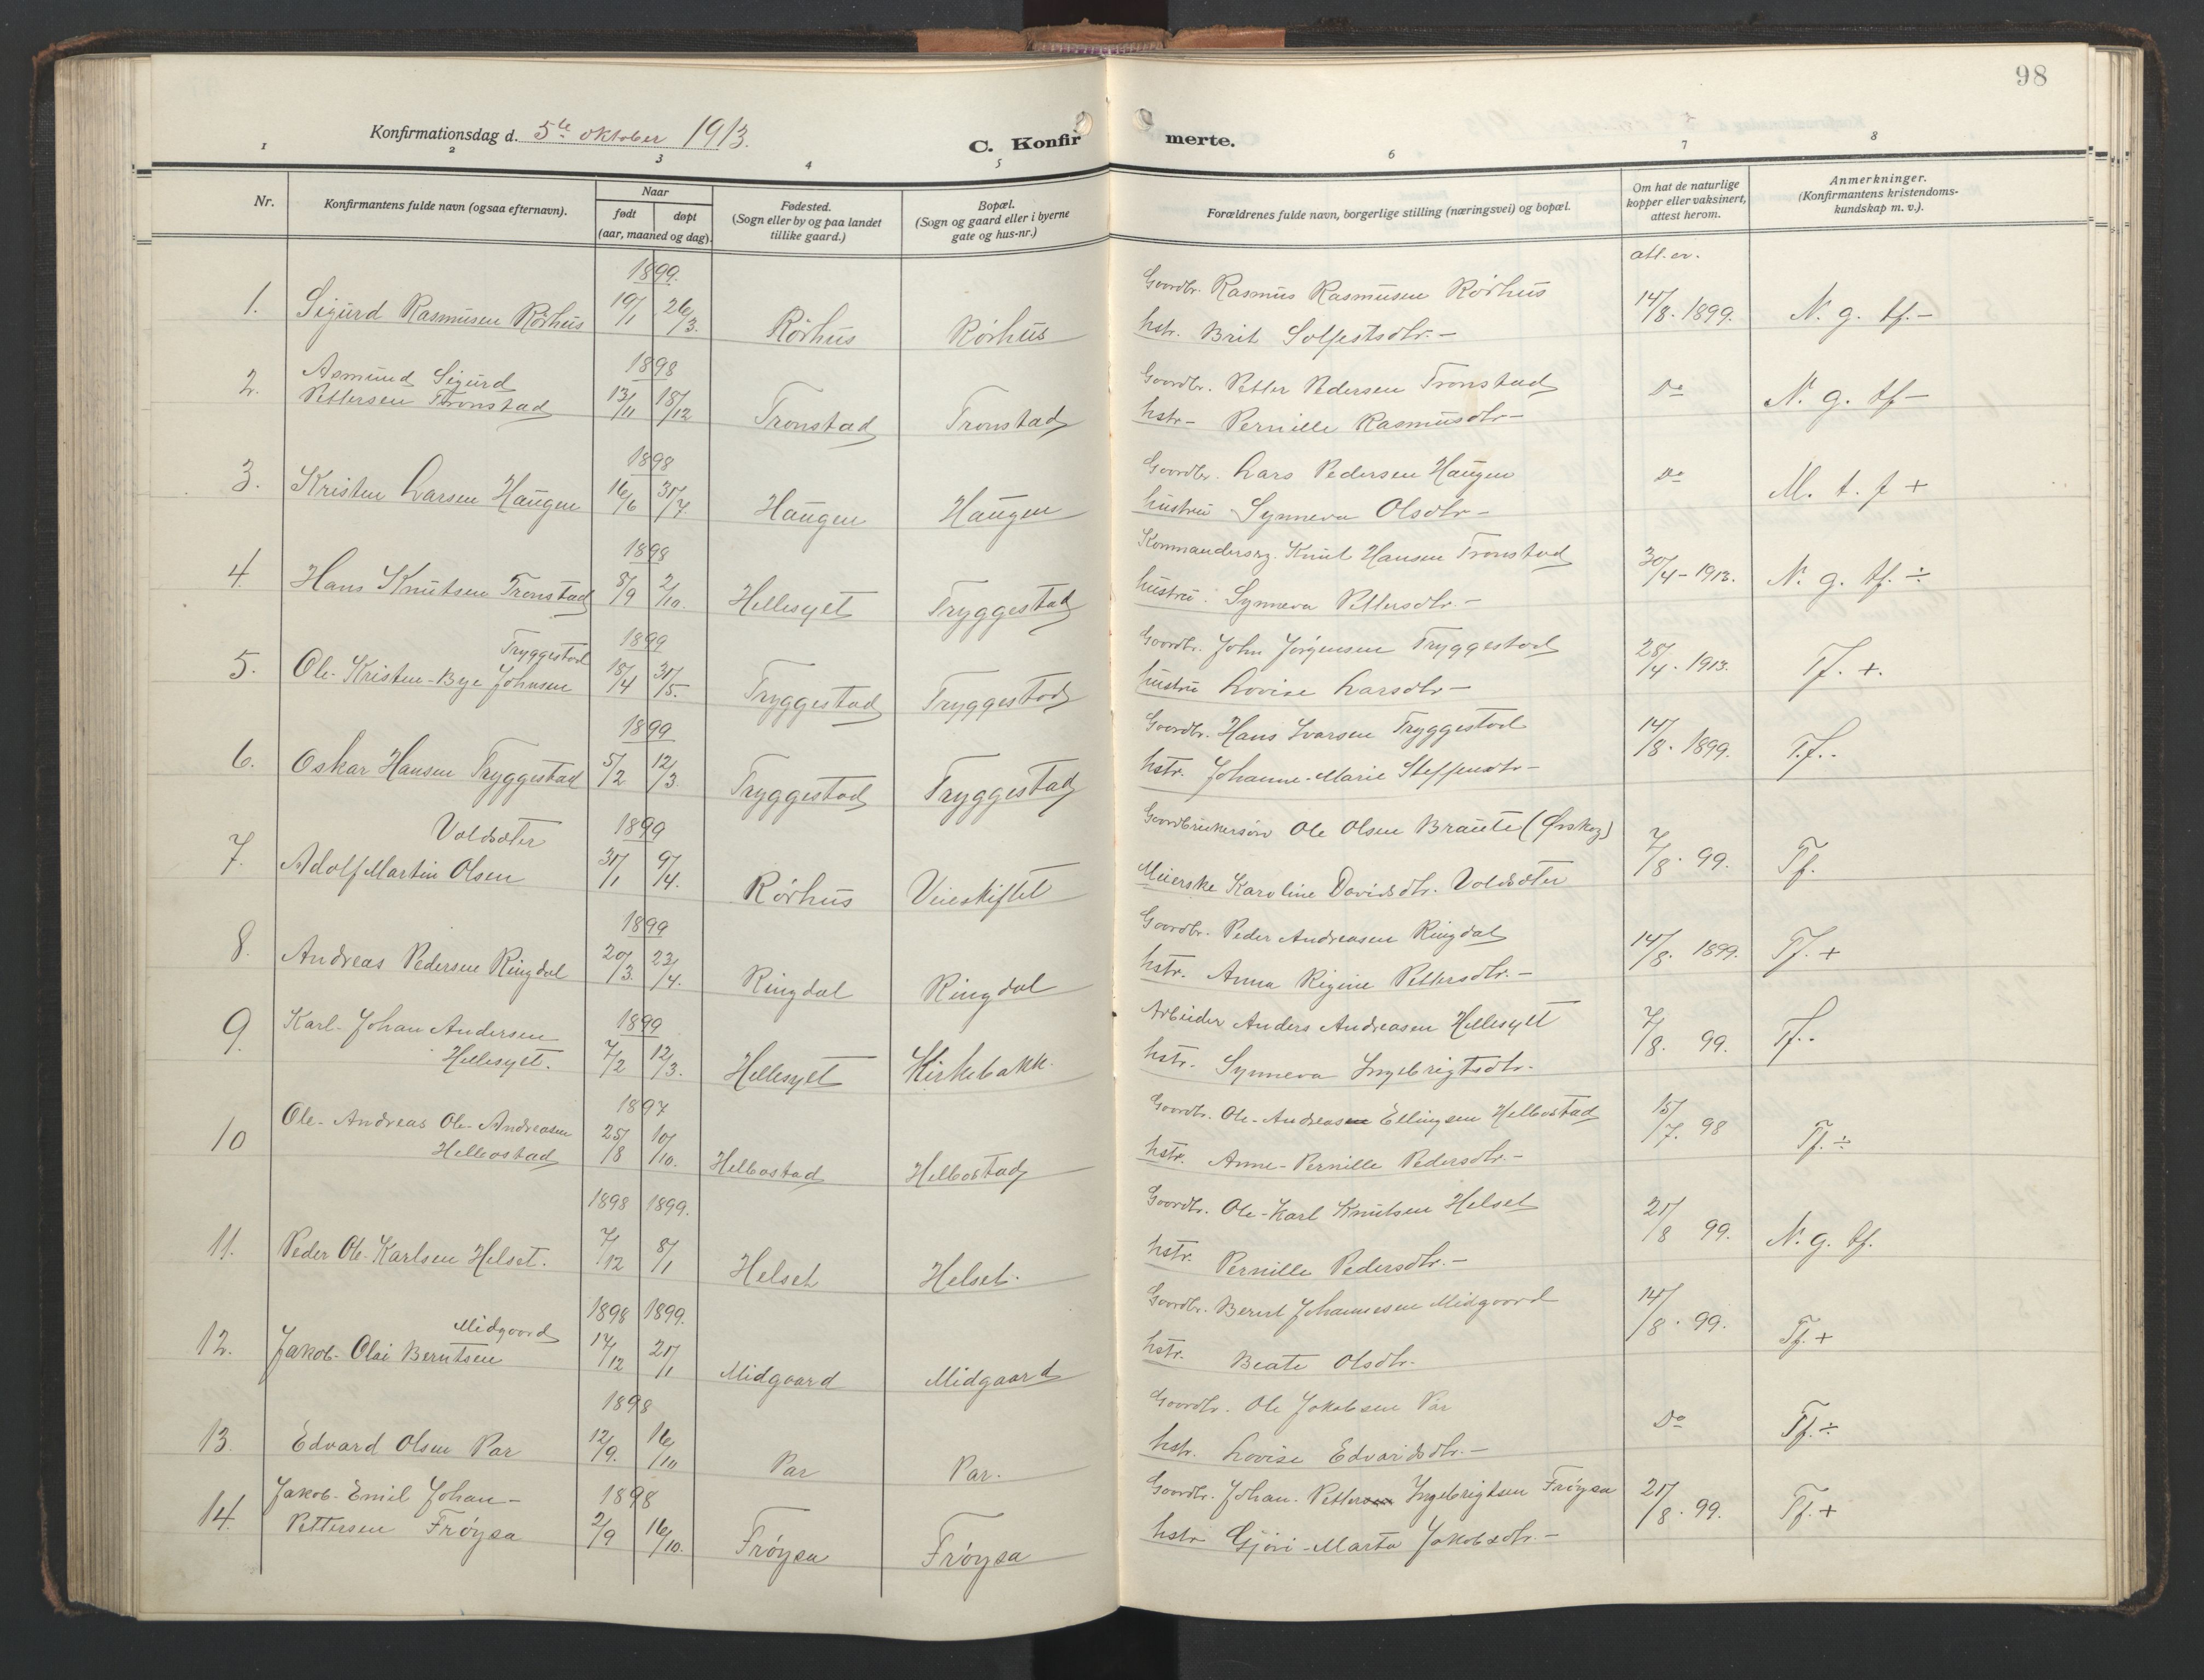 98
Konfirmationsdag d. 5te oktober 1913.
C. Konfirmerte.
1 2 3 4 5 6 7 8
Nr.
Konfirmantens fulde navn (ogsaa efternavn).
Naar
født
døpt
(aar, maaned og dag).
Fødested.
(Sogn eller by og paa landet
tillike gaard.)
Bopæl.
(Sogn og gaard eller i byerne
gate og hus-nr.)
Forældrenes fulde navn, borgerlige stilling (næringsvei) og bopæl.
Om hat de naturlige
kopper eller vaksinert,
attest herom.
Anmerkninger.
(Konfirmantens kristendoms-
kundskap m. v.).
att. er.
1899.
1. Sigurd Rasmusen Rörhus 19/1 26/3. Rörhus Rörhus
Goordbr. Rasmus Rasmusen Rörhus
hstr. Brit Solfestsdtr. -
14/8. 1899. N. g. tf. -
1898
2. Asmund Sigurd
Pettersen Tronstad 13/11 18/12 Tronstad Tronstad
Goordbr. Petter Pedersen Tronstad
hstr - Pernille Rasmusdtr -
Do N. g. tf -
1898
3. Kristen Larsen Haugen 16/6 31/7. Haugen Haugen
Goordbr. Lars Pedersen Haugen
hustru Synneva Olsdtr -
Do M. t. f +
1898
4. Hans Knutsen Tronstad 8/9 2/10. Hellesylt Tryggestad
Kommandersrg. Knut Hansen Tronstad
hustru. Synneva Pettersdtr. -
30/4 - 1913. N. g. tf. ÷
Tryggestad 1899
5. Ole-Kristen-Bye Johnsen 18/4 31/5. Tryggestad Tryggestad
Goordbr. John Jørgensen Tryggestad
hustru Lovise Larsdtr -
28/4. 1913. Tf. +.
1899
6. Oskar Hansen Tryggestad 5/2 12/3. Tryggestad Tryggestad
Goordbr. Hans Ivarsen Tryggestad
hstr. Johanne-Marie Steffensdtr -
14/8. 1899. T.f. -
Voldsæter 1899
7. Adolf Martin Olsen 31/1 9/4. Rörhus Vieskiftet
Goordbrukersøn Ole Olsen Braute (Ørskog)
Meierske Karoline Davidsdtr. Voldsæter
7/8. 99. Tf.
1899
8. Andreas Pedersen Ringdal 20/3. 23/4. Ringdal Ringdal
Goordbr. Peder Andreasen Ringdal
hstr. Anna Rigine Pettersdtr. -
14/8. 1899. Tf. +
1899
9. Karl-Johan Andersen
Hellesylt. 7/2 12/3. Hellesylt Kirkebakk.
Arbeider Anders Andreasen Hellesylt
hstr. Synneva Ingebrigtsdtr.
7/8. 99. Tf. -
1897
10 Ole-Andreas Ole-Andreasen
Hellbostad 25/8 10/10. Hellbostad Hellbostad
Goordbr. Ole-Andreasen Ellingsen Hellbostad
hstr. Anne-Pernille Pedersdtr. -
15/7. 98 Tf. ÷
1898 1899.
11. Peder Ole-Karlsen Helset. 7/12 8/1 Helset Helset.
Goordbr. Ole-Karl Knutsen Helset
hstr. Pernille Pedersdtr. -
21/8 99. N. g. tf.
Midgoord 1898 1899.
12. Jakob-Olai Berntsen 14/12 21/1 Midgaard Midgaard
Goordbr. Bernt Johannesen Midgoord
hstr. Beate Olsdtr.
14/8. 99. Tf. +
1898
13. Edvard Olsen Par 12/9. 16/10 Par Par.
Goordbr. Ole Jakobsen Par
hstr. Lovise Edvardsdtr. -
Do Tf. ÷
1898
14. Jakob-Emil Johan-
Pettersen Frøysa 2/9 16/10. Frøysa Frøysa
Goordbr. Johan-Pettersen Ingebrigtsen Frøysa
hstr Gjøri-Marta Jakobsdtr. -
21/8. 99. Tf. +